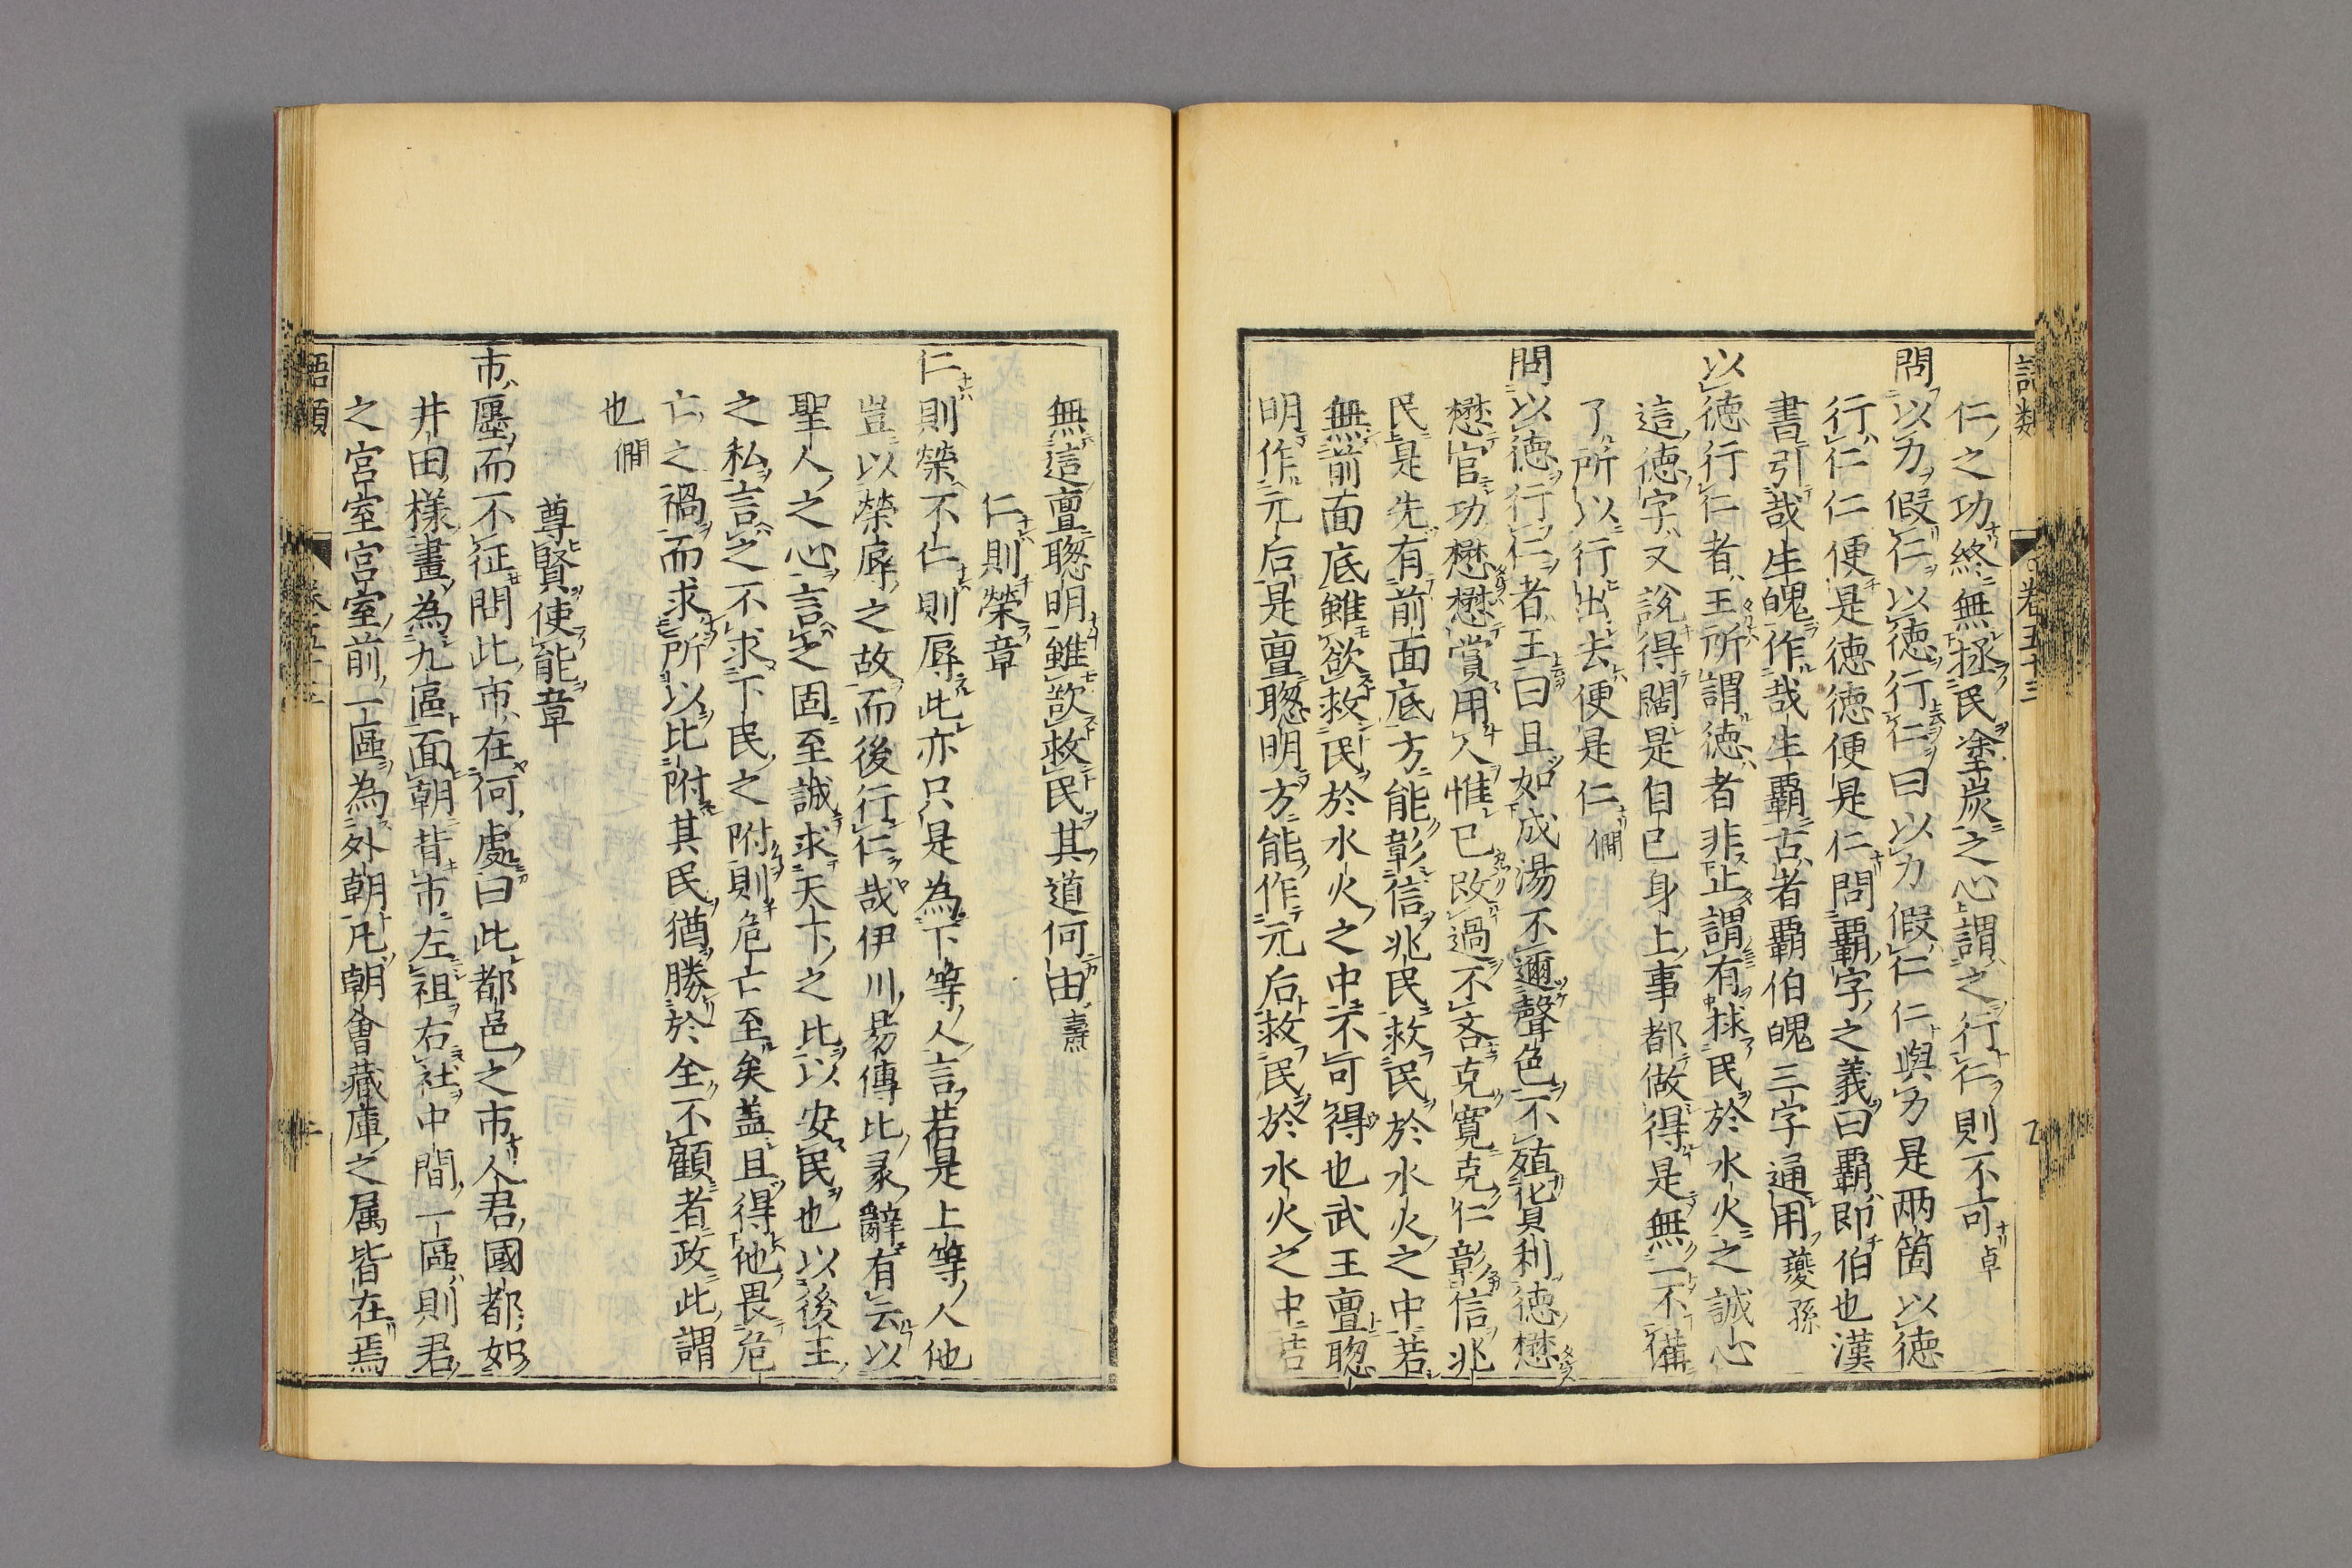 語類
卷五十三
仁之功終無拯民塗炭之心謂之行仁則不可卓
問以力假仁以德行仁曰以力假仁仁與力是两箇以德
行仁仁便是德德便是仁問霸字之義曰霸即伯也漢
書引哉生魄作哉生霸古者霸伯魄三字通用夔孫
以德行仁者王所謂德者非止謂有捄民於水火之誠心
這德字又說得闊是自己身上事都做得是無一不備
了所以行出去便是仁僩
問以德行仁者王曰且如成湯不邇聲色不殖貨利德懋
懋官功懋懋賞用人惟己改過不吝克寬克仁彰信兆
民是先有前面底方能彰信兆民救民於水火之中若
無前面底雖欲救民於水火之中不可得也武王亶聦
明作元后是亶聦明方能作元后救民於水火之中若
無這亶聦明雖欲救民其道何由燾
仁則榮章
仁則榮不仁則辱此亦只是為下等人言若是上等人他
豈以榮辱之故而後行仁哉伊川易傳比彖辭有云以
聖人之心言之固至誠求天下之比以安民也以後王
之私言之不求下民之附則危亡至矣盖且得他畏危
亡之禍而求所以比附其民猶勝於全不顧者政此謂
也僩
尊賢使能章
市廛而不征問此市在何處曰此都邑之市人君國都如
井田樣畫為九區面朝背市左祖右社中間一區則君
之宮室宮室前一區為外朝凡朝會藏庫之属皆在焉
語類